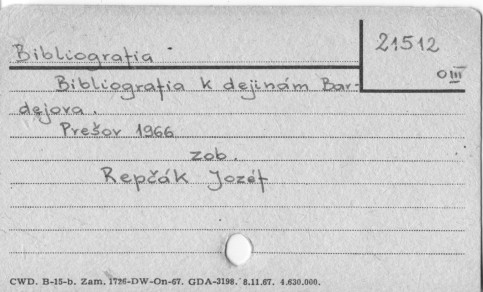 Bibliografia
21512
O III
Bibliografia k dejinám Bar-
dejova.
Prešov 1966
zob.
Repčák Jozéf
CWD. B-15-b. Zam. 1726-DW-On-67. GDA-3198. 8.11.67. 4.630.000.